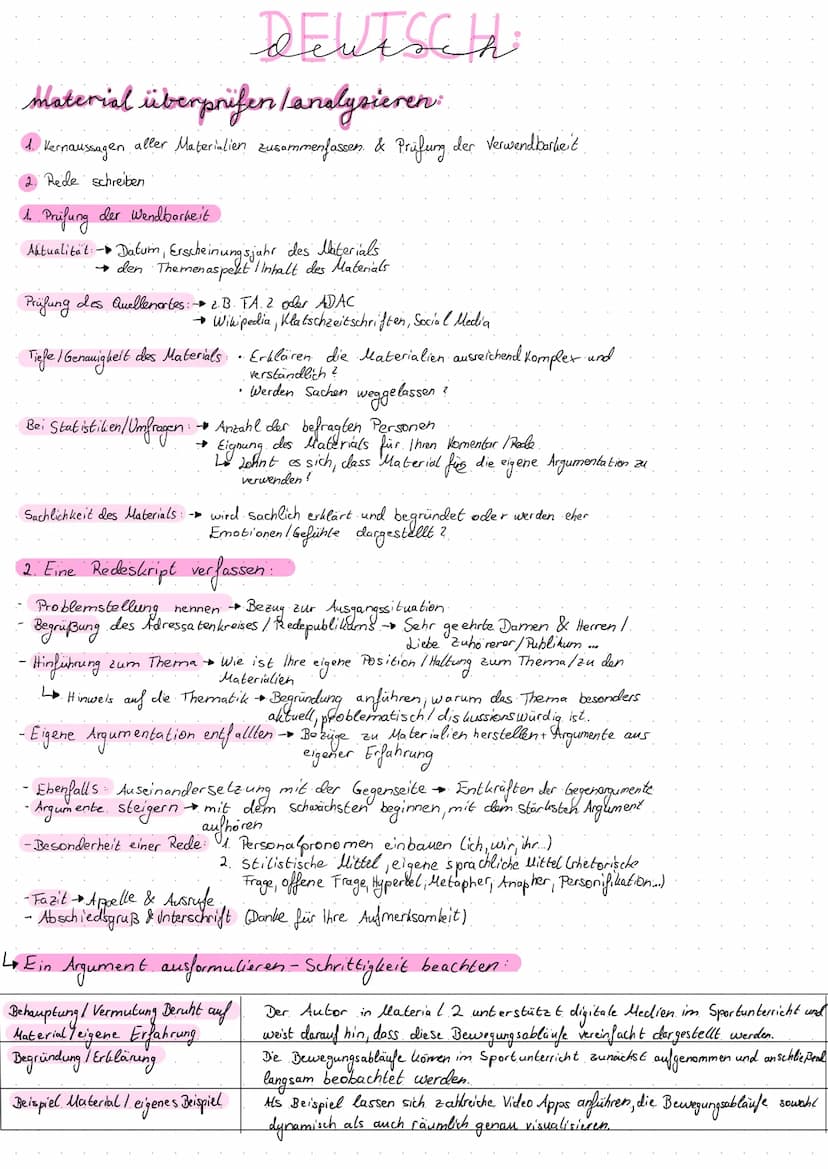 DEUTSCH:
deutsch
Material überprüfen/analysieren:
1. Kernaussagen aller Materialien zusammenfassen & Prüfung der Verwendbarkeit
2. Rede schreiben
1. Prüfung der Wendbarkeit
Aktualität: → Datum, Erscheinungsjahr des Materials
→ den Themenaspekt / Inhalt des Materials
Prüfung des Quellenortes: → z.B. FA.2 oder ADAC
→ Wikipedia, Klatschzeitschriften, Social Media
Tiefe/Genauigkeit des Materials: • Erklären die Materialien ausreichend komplex und
verständlich?
• Werden Sachen weggelassen?
Bei Statistiken/Umfragen: → Anzahl der befragten Personen
→ Eignung des Materials für Ihren Komentar/Rede
↳ Lohnt es sich, dass Material für die eigene Argumentation zu
verwenden?
Sachlichkeit des Materials: → wird sachlich erklärt und begründet oder werden eher
Emotionen/Gefühle dargestellt?
2. Eine Redeskript verfassen:
- Problemstellung nennen → Bezug zur Ausgangssituation
- Begrüßung des Adressatenkreises / Redepublikums → Sehr geehrte Damen & Herren /
Liebe Zuhörerer/Publikum ...
- Hinführung zum Thema → Wie ist Ihre eigene Position / Haltung zum Thema/zu den
Materialien
↳ Hinweis auf die Thematik → Begründung anführen, warum das Thema besonders
aktuell, problematisch / diskussionswürdig ist.
- Eigene Argumentation entfallten → Bezüge zu Materialien herstellen + Argumente aus
eigener Erfahrung
- Ebenfalls: Auseinandersetzung mit der Gegenseite → Entkräften der Gegenargumente
- Argumente steigern → mit dem schwächsten beginnen, mit dem stärksten Argument
aufhören
- Besonderheit einer Rede: 1. Personalpronomen einbauen (ich, wir, ihr...)
2. stilistische Mittel, eigene sprachliche Mittel (rhetorische
Frage, offene Frage, Hyperbel, Metapher, Anapher, Personifikation...)
- Fazit → Appelle & Ausrufe
- Abschiedsgruß & Unterschrift (Danke für Ihre Aufmerksamkeit)
↳ Ein Argument ausformulieren - Schrittigkeit beachten:
Behauptung / Vermutung Beruht auf
Material/eigene Erfahrung
Der Autor in Material 2 unterstützt digitale Medien im Sportunterricht und
weist darauf hin, dass diese Bewegungsabläufe vereinfacht dargestellt werden.
Begründung / Erklärung
Die Bewegungsabläufe können im Sportunterricht zunächst aufgenommen und anschließend
langsam beobachtet werden.
Beispiel Material / eigenes Beispiel
Als Beispiel lassen sich zahlreiche Video Apps anführen, die Bewegungsabläufe sowohl
dynamisch als auch räumlich genau visualisieren.